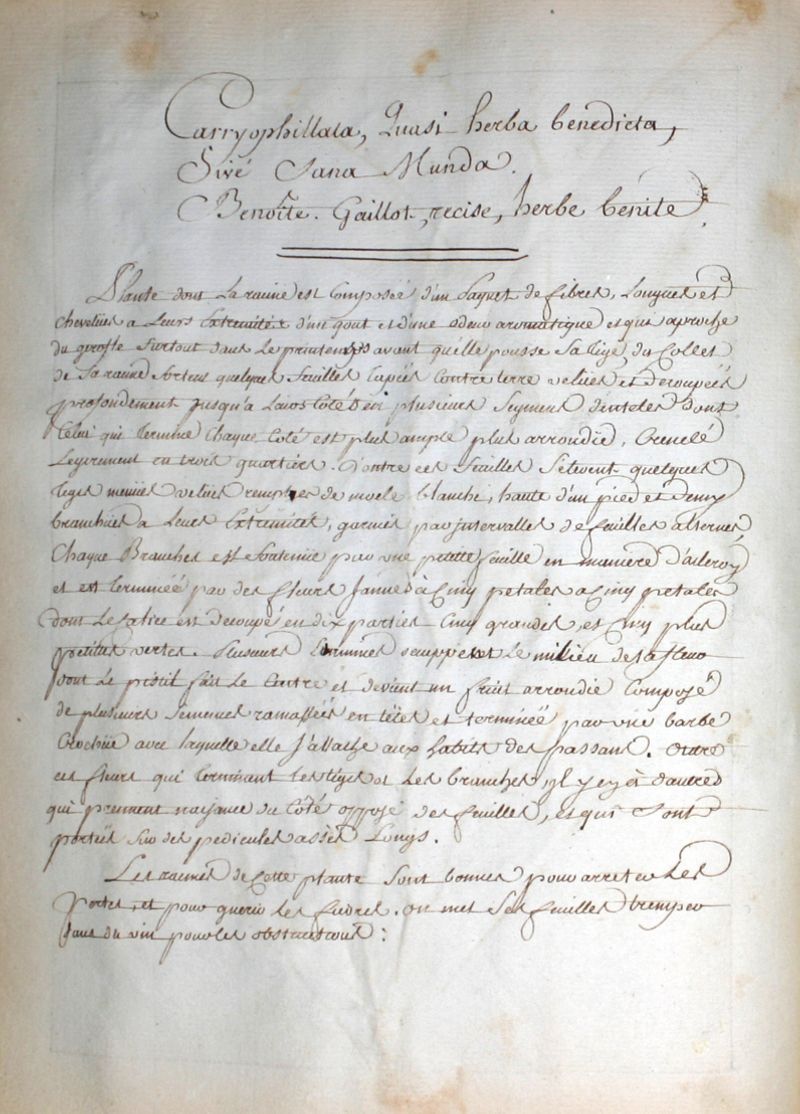 Carryophillata, Quasi herba benedicta,
Sivé Sana Munda.
Benoîte. Gaillot, recise, herbe bénite.
Plante dont la racine est Composée d'un paquet de fibres, Longues et
chevelues a Leurs Extremités d'un gout et d'une odeur aromatique et qui aproche
du girofle surtout dans le printems avant qu'elle pousse sa tige, du Collet
de sa racine sortent quelques feuilles tapies contre terre velues et decoupées
profondement jusqu'a Leurs Coté en plusieurs Segmens dentelés dont
Celui qui termine chaque Coté est plus ample plus arroudie, Crenelé
Legerement en trois quartiers. d'entre ces feuilles s'elevent quelques
tiges menües velues remplies de moele blanche, haute d'un pied et demy
branchües a Leurs Extremités, garnies par jntervalles de feuilles alternes,
Chaque Branches est soutenue par une petite feuille en maniere d'aileron
et est terminéé par des fleurs Jaunes à Cinq petales a Cinq petales
dont le Calice est decoupé en dix parties Cinq grandes, et Cinq plus
petites vertes. Plusieurs Etamines occuppent Le milieu de sa fleur
dont Le pistil fait Le Centre et devient un fruit arroudie Composé
de plusieurs Semences ramassées en têtes et terminéé par une barbe
Crochüe avec laquelle elle s'attache aux habits des passans. Outre
ces fleurs qui terminent les tiges et Les branches, jl y en à d'autres
qui prennent naissance du Côté opposé des feuilles, et qui sont
portées sur des pedicules assés Longs.
Les racines de Cette plante sont bonnes pour arreter Les
pertes, et pour guerir les fievres. on met ses feuilles tremper
dans du vin pour les obstructions: